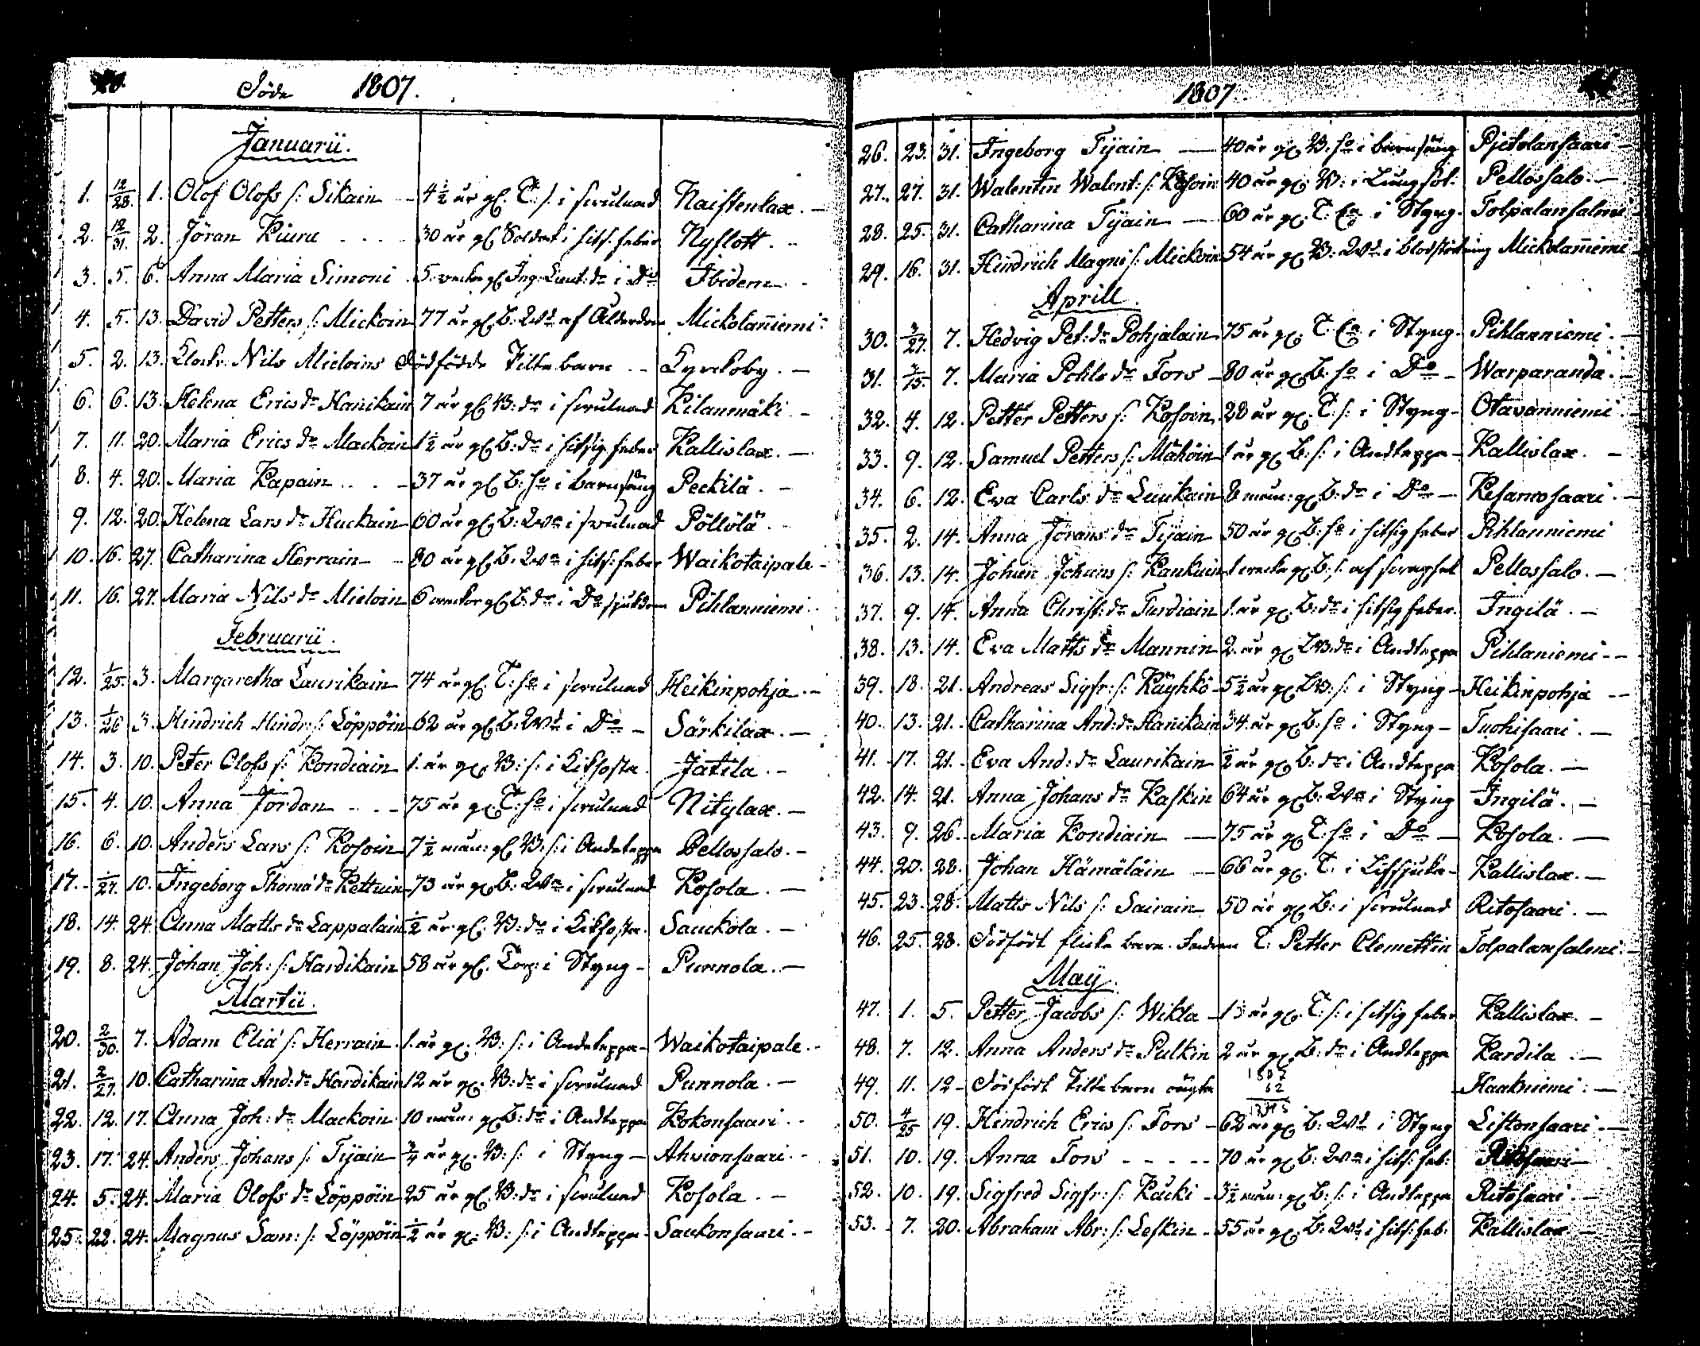 Döde 1807.
Januarii.
1. 12/28. 1. Olof Olofs s: Sikain 4 1/2 år gl. T: s: i Naistenlax.
2. 12/31. 2. Jöran Kiuru 30 år gl Soldat i hits: feber Nyslott.
3. 5. 6. Anna Maria Simoni 5. wecko gl Ing: Lieut: dr i Do Ibidem
4. 5. 13. David Petters s: Mickoin 77 år gl B: af Ålderdom Mickolanniemi
5. 2. 13. Klock: Nils Micloins dödfödde Piltebarn Kyrckoby.
6. 6. 13. Helena Erics dr Hanikain 7 år gl B: dr i Kilanmäki
7. 11. 20. Maria Erics dr Mackoin 1 1/2 år gl B: dr i hitsig feber Kallislax.
8. 4. 20. Maria Kapain 37 år gl B: ho i barnsäng Peckilä.
9. 12. 20. Helena Lars dr Huckain 60 år gl B: i Pöllölä
10. 16. 27. Catharina Herrain 80 år gl B: i hits: feber Waikotaipale
11. 16. 27. Maria Nils dr Micloin 6 weckor gl B: dr i Do Pihlanniemi
Februarii.
12. 1/25. 3. Margaretha Laurikain 74 år gl T: ho i Heikinpohja
13. 1/26 3. Hindrich Hindr: s: Löppöin 62 år gl B: i Do Särkilax.
14. 3. 10. Peter Olofs s: Kondiain 1. år gl B: s: i Kikhosta Jätilä.
15. 4. 10. Anna Jordan 75 år gl T: ho i Nitylax.
16. 6. 10. Anders Lars s: Kosoin 7 1/2 mån: gl B: s: i Andteppa Pellossalo.
17. 1/27. 10. Ingeborg Thoma dr Kettuin 73 år gl B: i Kosola.
18. 14. 24. Anna Matts dr Lappalain 1/2 år gl B: dr i Kikhosta Sauckola.
19. 8. 24. Johan Joh: s: Hardikain 58 år gl. i Styng Punnola.
Martii.
20. 2/30. 7. Adam Eliä s: Herrain 1. år gl. B: s: i Andteppa Waikotaipale.
21. 2/27. 10. Catharina And: dr Hardikain 12 år gl B: dr i Punnola.
22. 12. 17. Anna Joh: dr Mackoin 10 mån: gl B: dr i Andteppa Kokonsaari.
23. 17. 24. Anders Johans s: Tijain 3/4 år gl. B: s: i Styng Ahvionsaari.
24. 5. 24. Maria Olofs dr Löppöin 25 år gl B: dr i Kosola.
25. 22. 24. Magnus Sam: s: Löppöin 1/2 år gl. B: s: i Andteppa Saukonsaari.
1807.
26. 23. 31. Ingeborg Tijain 40 år gl B: ho i barnsäng Pjetolansaari
27. 27. 31. Walentin Walent: s: Kosoin 40 år gl B: i Lungsot: Pellossalo.
28. 25. 31. Catharina Tijain 60 år gl T: i Styng. Tolpalansalmi
29. 16. 31. Hindrich Magni s: Mickoin 54 år gl B: i blodstörtning Mickolanniemi
Aprill.
30. 3/27. 7. Hedvig Pet: dr Pohjalain 75 år gl T: i Styng. Pihlanniemi
31. 3/15. 7. Maria Pohls dr Fors 80 år gl B: ho i Do Warparanda.
32. 4. 12. Petter Petters s: Kosoin 28 år gl. T: s: i Styng Otavanniemi
33. 9. 12. Samuel Petters s: Mähöin 1 år gl B: s: i Andteppa Kallislax.
34. 6. 12. Eva Carls dr Luukain 8 mån: gl B: dr i Do Kesamosaari.
35. 2. 14. Anna Jörans dr Tijain 50 år gl B: ho i hitsig feber Pihlanniemi
36. 13. 14. Johan Johans s: Kankuin 1 wecka gl B: s: af Pellossalo.
37. 9. 14. Anna Christ: dr Turdiain 1. år gl B: dr i hitsig feber. Ingilä.
38. 13. 14. Eva Matts dr Mannin 2. år gl B: dr i Andteppa Pihlaniemi
39. 18. 21. Andreas Sigfr: s: Käyhkö 5 1/2 år gl B: s: i Styng Heikinpohja
40. 13. 21. Catharina And: dr Hanikain 34 år gl B: ho i Styng Tuohisaari.
41. 17. 21. Eva And: dr Laurikain 1/2 år gl B: dr i Andteppa Kosola.
42. 14. 21. Anna Johans dr Kaskin 64 år gl B: i Styng Ingilä.
43. 9. 26. Maria Kondiain 75 år gl T: ho i Do Kosola.
44. 20. 28. Johan Hämäläin 66 år gl. T: i Kallislax.
45. 23. 28. Matts Nils s: Sairain 50 år gl B: i Ritosaari.
46. 25. 28. Dödfödt flicke barn. T: Petter Clemettin Tolpalansalmi
Maÿ.
47. 1. 5. Petter Jacobs s: Wikla gl T: s: i hitsig feber Kallislax.
48. 7. 12. Anna Anders dr Pulkin 2 år gl B: dr i Andteppa Kardila
49. 11. 12 Dödfödt Pilte barn oägta Haukniemi:
1807
62
1745
50. 4/25 19. Hindrich Erics s: Fors 62 år gl B: i Styng Listonsaari
51. 10. 19. Anna Fors 70 år gl B: i hits: feb: Ritosaari
52. 10. 19. Sigfred Sigfr: s: Käcki 3 1/2 mån: gl B: s: i Andteppa Ritosaari.
53. 7. 20. Abraham Abr: s: Leskin 55 år gl B: i hits: feb: Kallislax